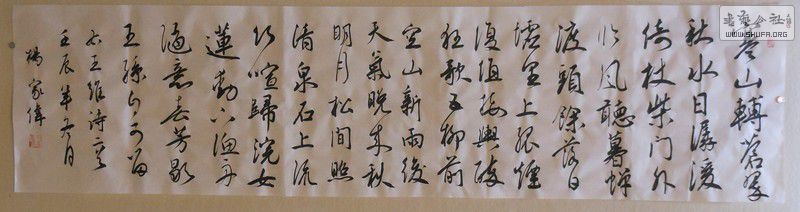 寒山轉蒼翠
秋水日潺湲
倚杖柴門外
臨風聽暮蟬
渡頭餘落日
墟里上孤煙
復值接輿醉
狂歌五柳前
空山新雨後
天氣晚來秋
明月松間照
清泉石上流
竹喧歸浣女
蓮動下漁舟
隨意春芳歇
王孫自可留
右王維詩二首
壬辰年 月
楊家偉
書藝公社
WWW.SHUFA.ORG